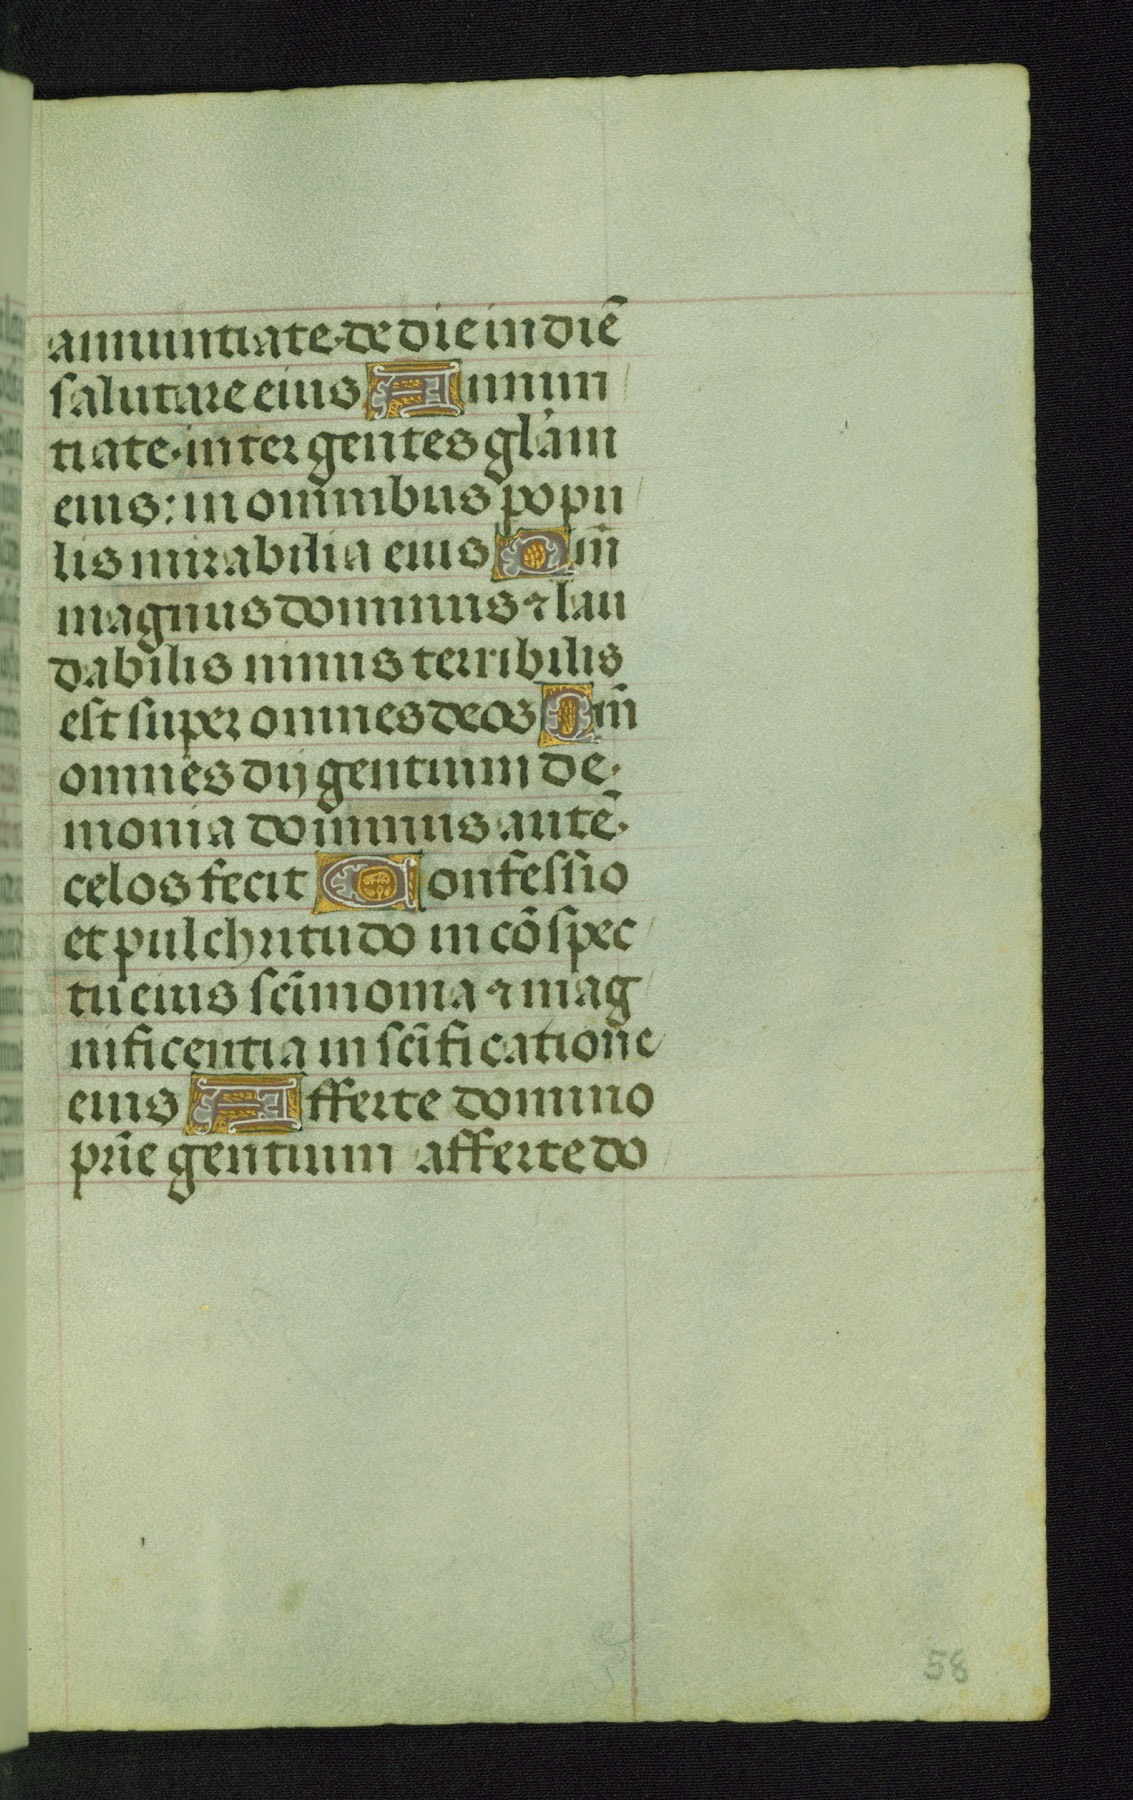 annuntiate de die in diē
salutare eius Annun
tiate inter gentes glām
eius: in omnibus popu
lis mirabilia eius Qm̄
magnus dominus ⁊ lau
dabilis nimis terribilis
est super omnes deos Qm̄
omnes dij gentium de
monia dominus autē
celos fecit Confessio
et pulchritudo in cōspec
tu eius sc̄imonia ⁊ mag
nificentia in sc̄ificatione
eius Afferte domino
pr̄ie gentium afferte do
58